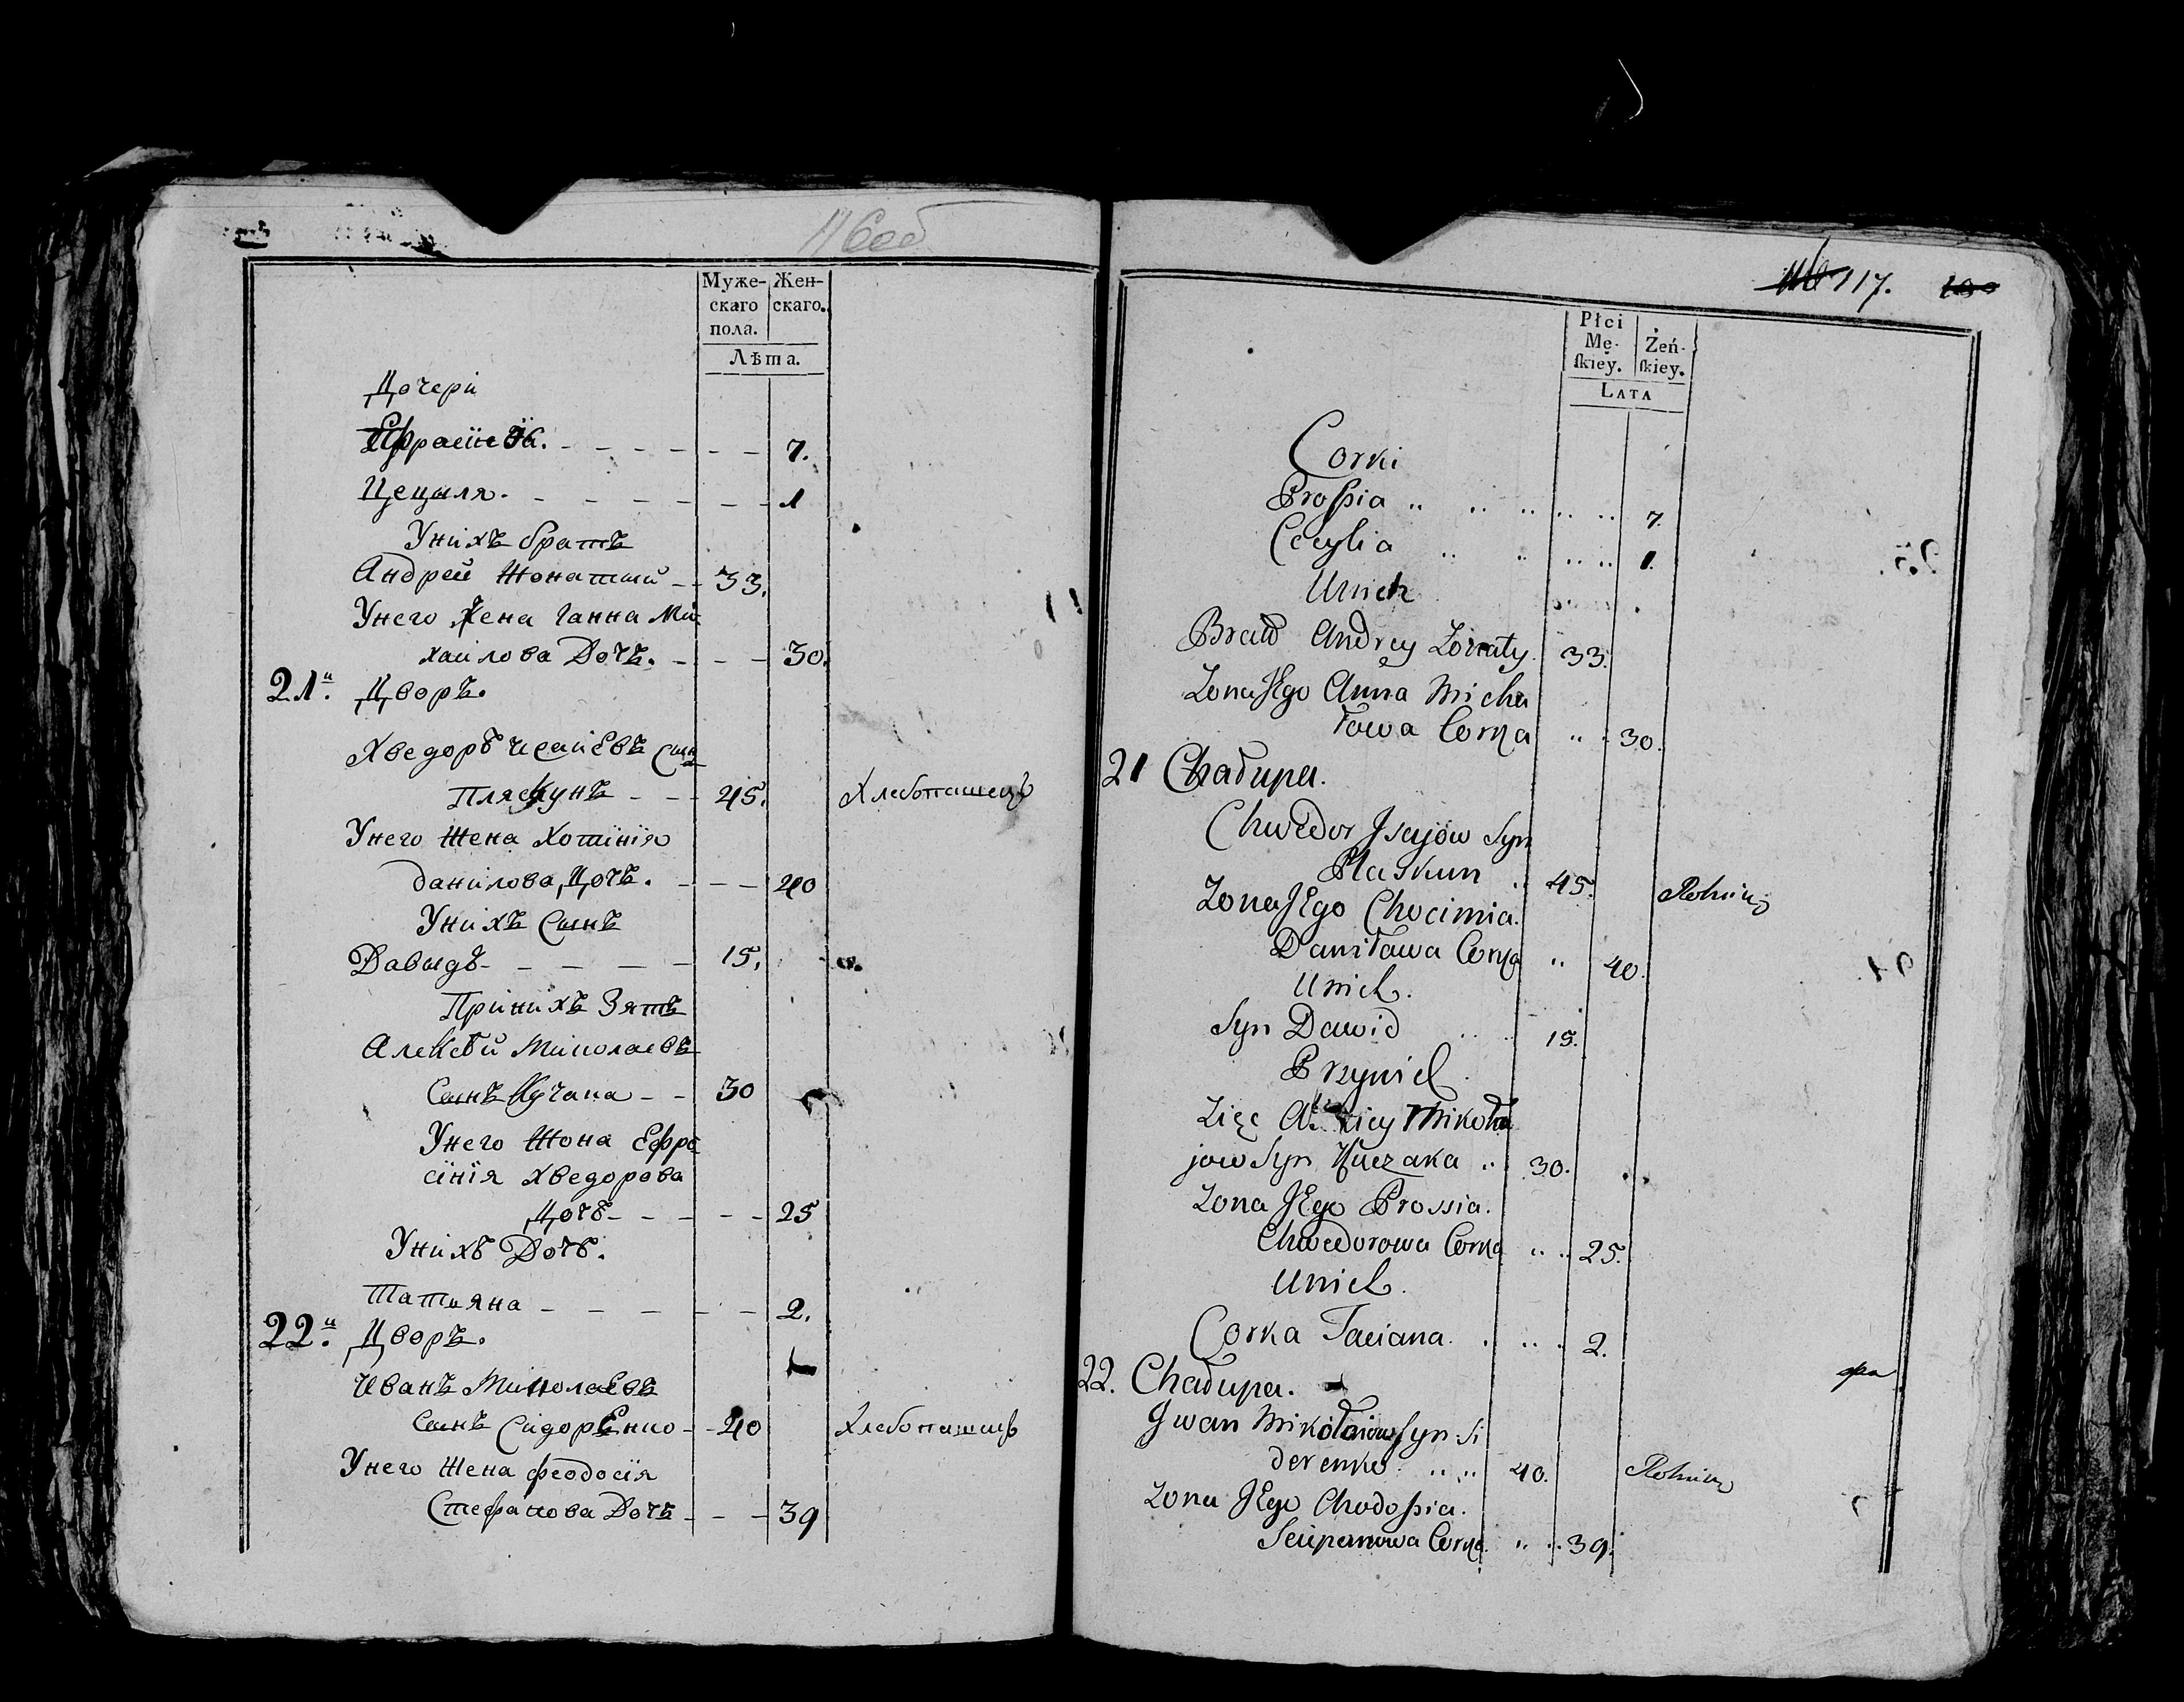 116об
Муже- Жен-
скаго скаго.
пола.
Лѣта.
Дочери
7.
Цецыля. 1
Унихъ братъ
Андрей Жонатый 33.
Унего Жена Ганна Ми
хаилова Дочь. 30.
21й. Дворъ.
Хведоръ Исаиевъ Сынъ
Пляскунъ 45. Хлебопашецъ
Унего Жена Хотинія
данилова Дочь. 40
Унихъ Сынъ
Давыдъ 15.
Принихъ Зять
Алексѣй Миколаевъ
Сынъ Кучапа 30
Унего Жона Ефро
синія Хведорова
Дочь 25
Унихъ Дочь.
Татьяна 2.
22й. Дворъ.
Иванъ Миколаевъ
Сынъ Сидоренко 40 Хлебопашецъ
Унего Жена феодосія
Стефанова Дочь 39
117.
Płci Żeń-
Mę- skiey.
skiey.
LATA
Corki
Prossia 7.
Cecylia 1.
Unich
Bratt Andrey Zonaty. 33.
Zona JEgo Anna Micha
łowa Corka 30.
21 Chałupa.
Chwedor Jsajow Syn
Plaskun 45. Rolnik
Zona JEgo Chocimia.
Daniłowa Corka 40.
Unich.
Syn Dawid 15.
Przynich
Zięc Mikoła
jow Syn Kuczaka 30.
Zona JEgo Prossia.
Chwedorowa Corka 25.
Unich.
Corka Taciana. 2.
22. Chałupa.
Jwan Mikołaiow Syn Si
derenko 40. Rolnik
Zona JEgo Chodossia.
Scieparnowa Corka 39.